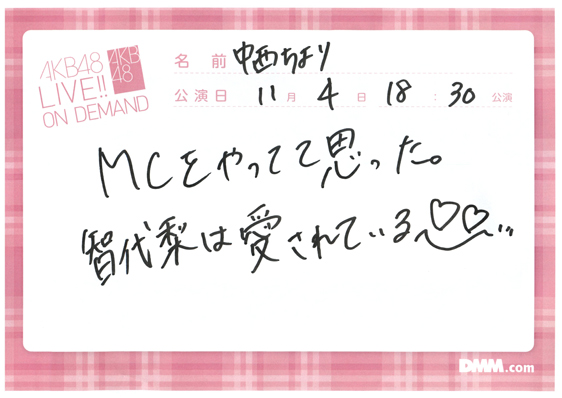 AKB48
LIVE!!
ON DEMAND
AKB
48
名前 中西ちより
公演日 11月4日 18:30公演
MCをやってて思った。
智代梨は愛されている
DMM.com